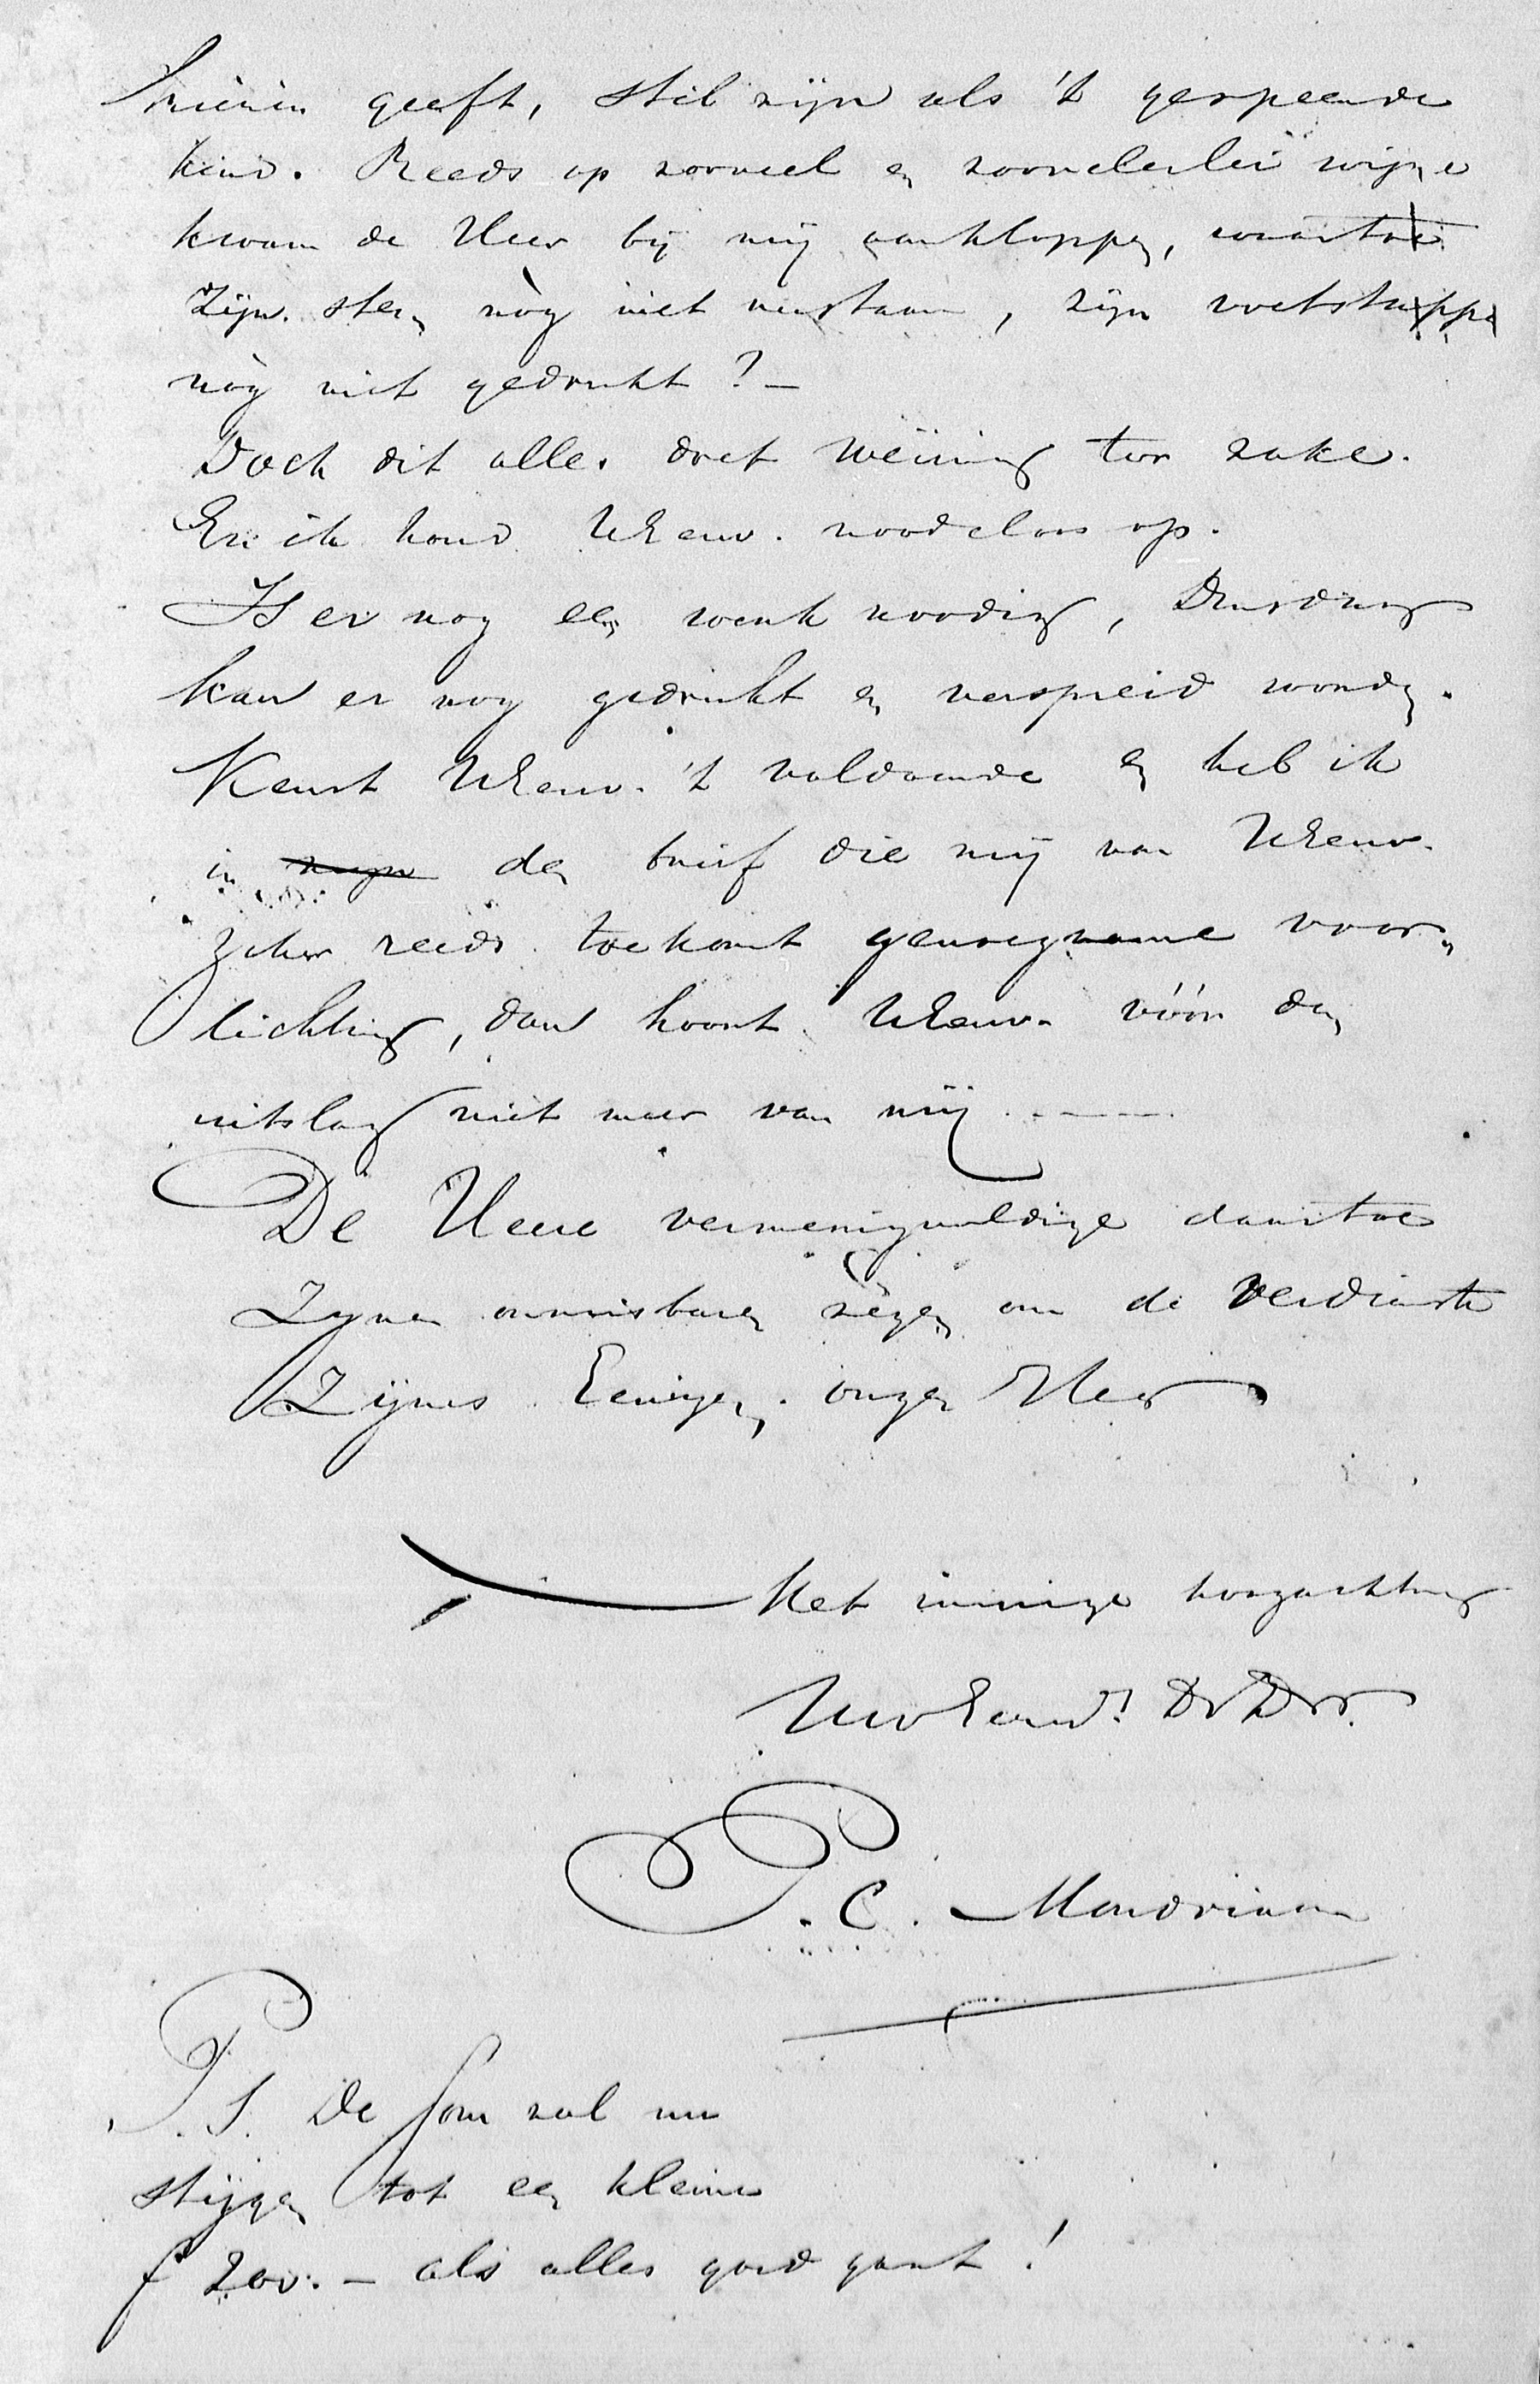 hierin geeft, stil zijn als 't gespeende
kind. Reeds op zooveel en zoovelerlei wijze
kwam de Heer bij mij aankloppen, waartoe
Zijn stem nòg niet verstaan, zijn voetstappen
nòg niet gedrukt? –
Doch dit alles doet weinig ter zake.
En ik houd UEerw. noodeloos op.
Is er nog een wenk noodig, Dinsdag
kan er nog gedrukt en verspreid worden.
Keurt UEerw. 't voldoende en heb ik
in den brief die mij van UEerw.
zeker reeds toekomt genoegzame voor„
lichting, dan hoort UEerw. vóór den
uitslag niet meer van mij. ----
De Heere vermenigvuldige daartoe
Zynen onmisbaren zegen om de verdienste
Zijnes Eenigen, onzen Heer
Met innige hoogachting
UwEerw. Dr Drr.
P. C. Mondriaan
P.S. De som zal nu
stijgen tot een kleine
f 200. – als alles goed gaat!